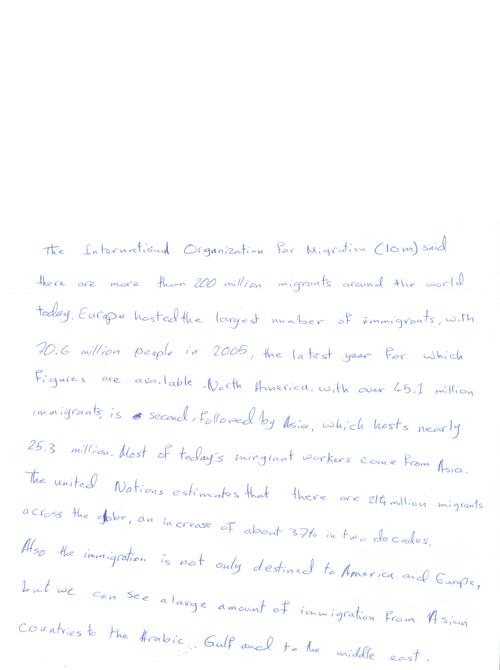 The International Organization for Migration (IOM) said
there are more than 200 million migrants around the world
today. Europe hosted the largest number of immigrants, with
70.6 million people in 2005, the latest year for which
figures are available. North America, with over 45.1 million
immigrants, is second, followed by Asia, which hosts nearly
25.3 million. Most of today's mirgrant workers come from Asia.
The united Nations estimates that there are 214 million migrants
across the globe, an increase of about 37% in two decades.
Also the immigration is not only destined to America and Europe,
but we can see a large amount of immigration from Asian
Countries to the Arabic Gulf and to the middle east.